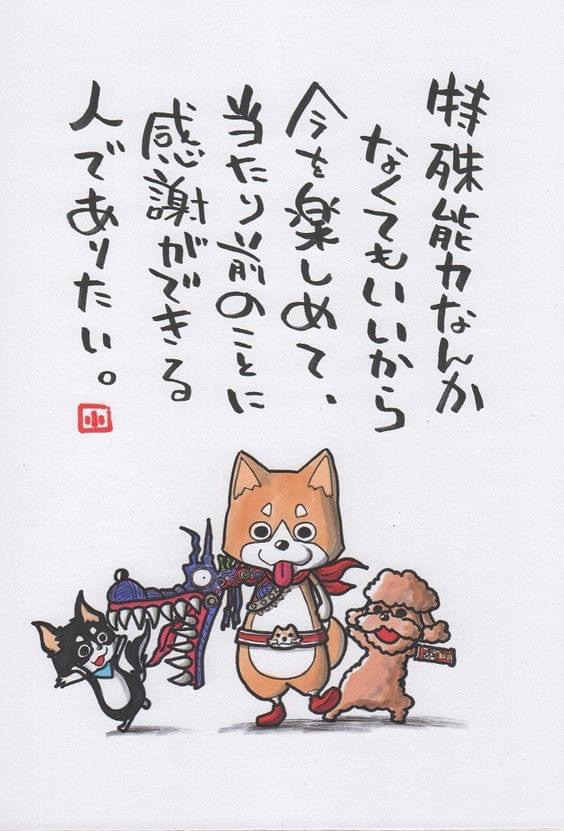 特殊能力なんか
なくてもいいから
今を楽しめて、
当たり前のことに
感謝ができる
人でありたい。
小